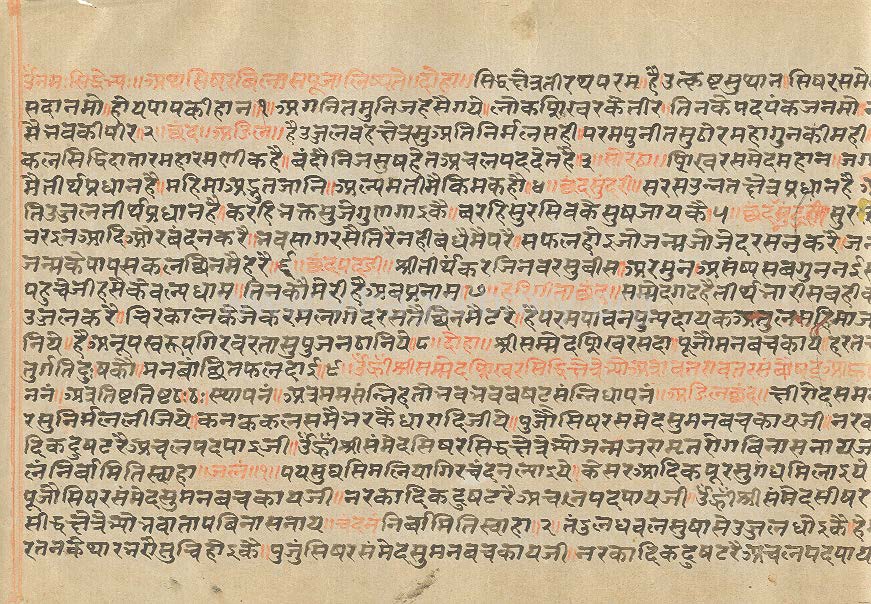 ॥उँनमःसिद्धेभ्यः॥अथसिषरविलासपूजालिष्यते॥दोहा॥सिद्धछेत्रतीरथपरम॥हैउत्कृष्टसुथान॥सिषरसमे
सदानमौ॥होयपापकीहान१॥अगनितमुनिजहसेगये॥लोकशिखरकेतीर॥तिनकेपदपंकजनमौ॥
मैनवकीपीर२॥छंद॥अडिल॥हैउजलवहछेत्रसुअतिनिर्मलसही॥परमपुनीतसुठोरमहागुनकीमही॥
कलसिद्धिदातारमहारमणीकहै॥बंदौनिजसुषहेतअचलपददेतहै३॥सोरठा॥शिखरसमेदमहान॥जग
मैतीर्थप्रधानहै॥महिमाअद्भुतजानि॥अल्पमतीमैकिमकहौ४॥छंदसुंदरी॥सरसउन्नतछेत्रप्रधानहै॥
तिउजलतीर्थप्रधानहै॥करहिभक्तसुजेगुणगाइकै॥बरहिसुरसिवकेसुषजायकै५॥छंदसुंदरी॥सुर
नरइनआदिऔरबंदनकरै॥भवसागरसैतिरैनहीबंधमैपरै॥सफलहोइजोजन्मजोजेदरसनकरै॥जन
जन्मकेपापसकलछिनमैहरै६॥छंदपद्डी॥श्रीतीर्थंकरजिनवरसुवीस॥अरमुनअसंष्यसबगुननईस
पहुचेजहसैकेवल्पधाम॥तिनकौमेरीहैअबप्रनाम७॥हरिगीताछंद॥सम्मेदगढहैतीर्थभारीसबहीक
उजलकरै॥चिरकालकेजेकरमलागेदरसतैछिनमैटरै॥हैपरमपावनपुन्पदायकअतुलमहिमाज
निये॥हैअनूपसरूपगिरवरतासुपुजनठानिये८॥दोहा॥श्रीसम्मेदशिखरसदा॥पूजौमनबचकाय॥हरतच
तुर्गतिदुषकौ॥मनबांछितफलदाइ९॥उँह्रींश्रीसम्मेदशिखरसिद्धिछेत्रेभ्योअत्रावतरावतरसंवौषटआह्वा
ननं॥अत्रतिष्ठतिष्ठठःठः॥स्थापनं॥अत्रममसंन्निहतोभवभवबषटसन्निधापनं॥अडिलछंद॥छीरोदसम
रसुनिर्मललीजिये॥कनककलसमैभरकैधारादिजीये॥पुजौसिषरसमेदसुमनबचकायजी॥नरक
दिकदुषटरैअचलपदपाइजी॥उँह्रींश्रीसंमेदसिषरसिद्धछेत्रेभ्योजन्मजरामृतरोगविनासनायज
लंनिर्वामितिस्वाहा॥जलं॥१॥पयसुघसिमलियागिरचंदनल्याइये॥केसरआदिकपूरसुगंधमिलाइये
पूजौसिषरसंमेदसुमनबचकायजी॥नरकादिकदुषटरैअचलपदपायजी॥उँह्रींश्रीसंमेदसीषर
सीद्धछेत्रेभ्योभवातापविनासनाय॥चदनं॥निर्वामितिस्वाहा॥२॥तंदुलधवलसुषासेउजलधोइकै॥हे
रतनकेथारभरौसुचिहोइकै॥पुजुंसिषरसंमेदसुमनबचकायजी॥नरकादिकदुषटरैअचलपदपाय